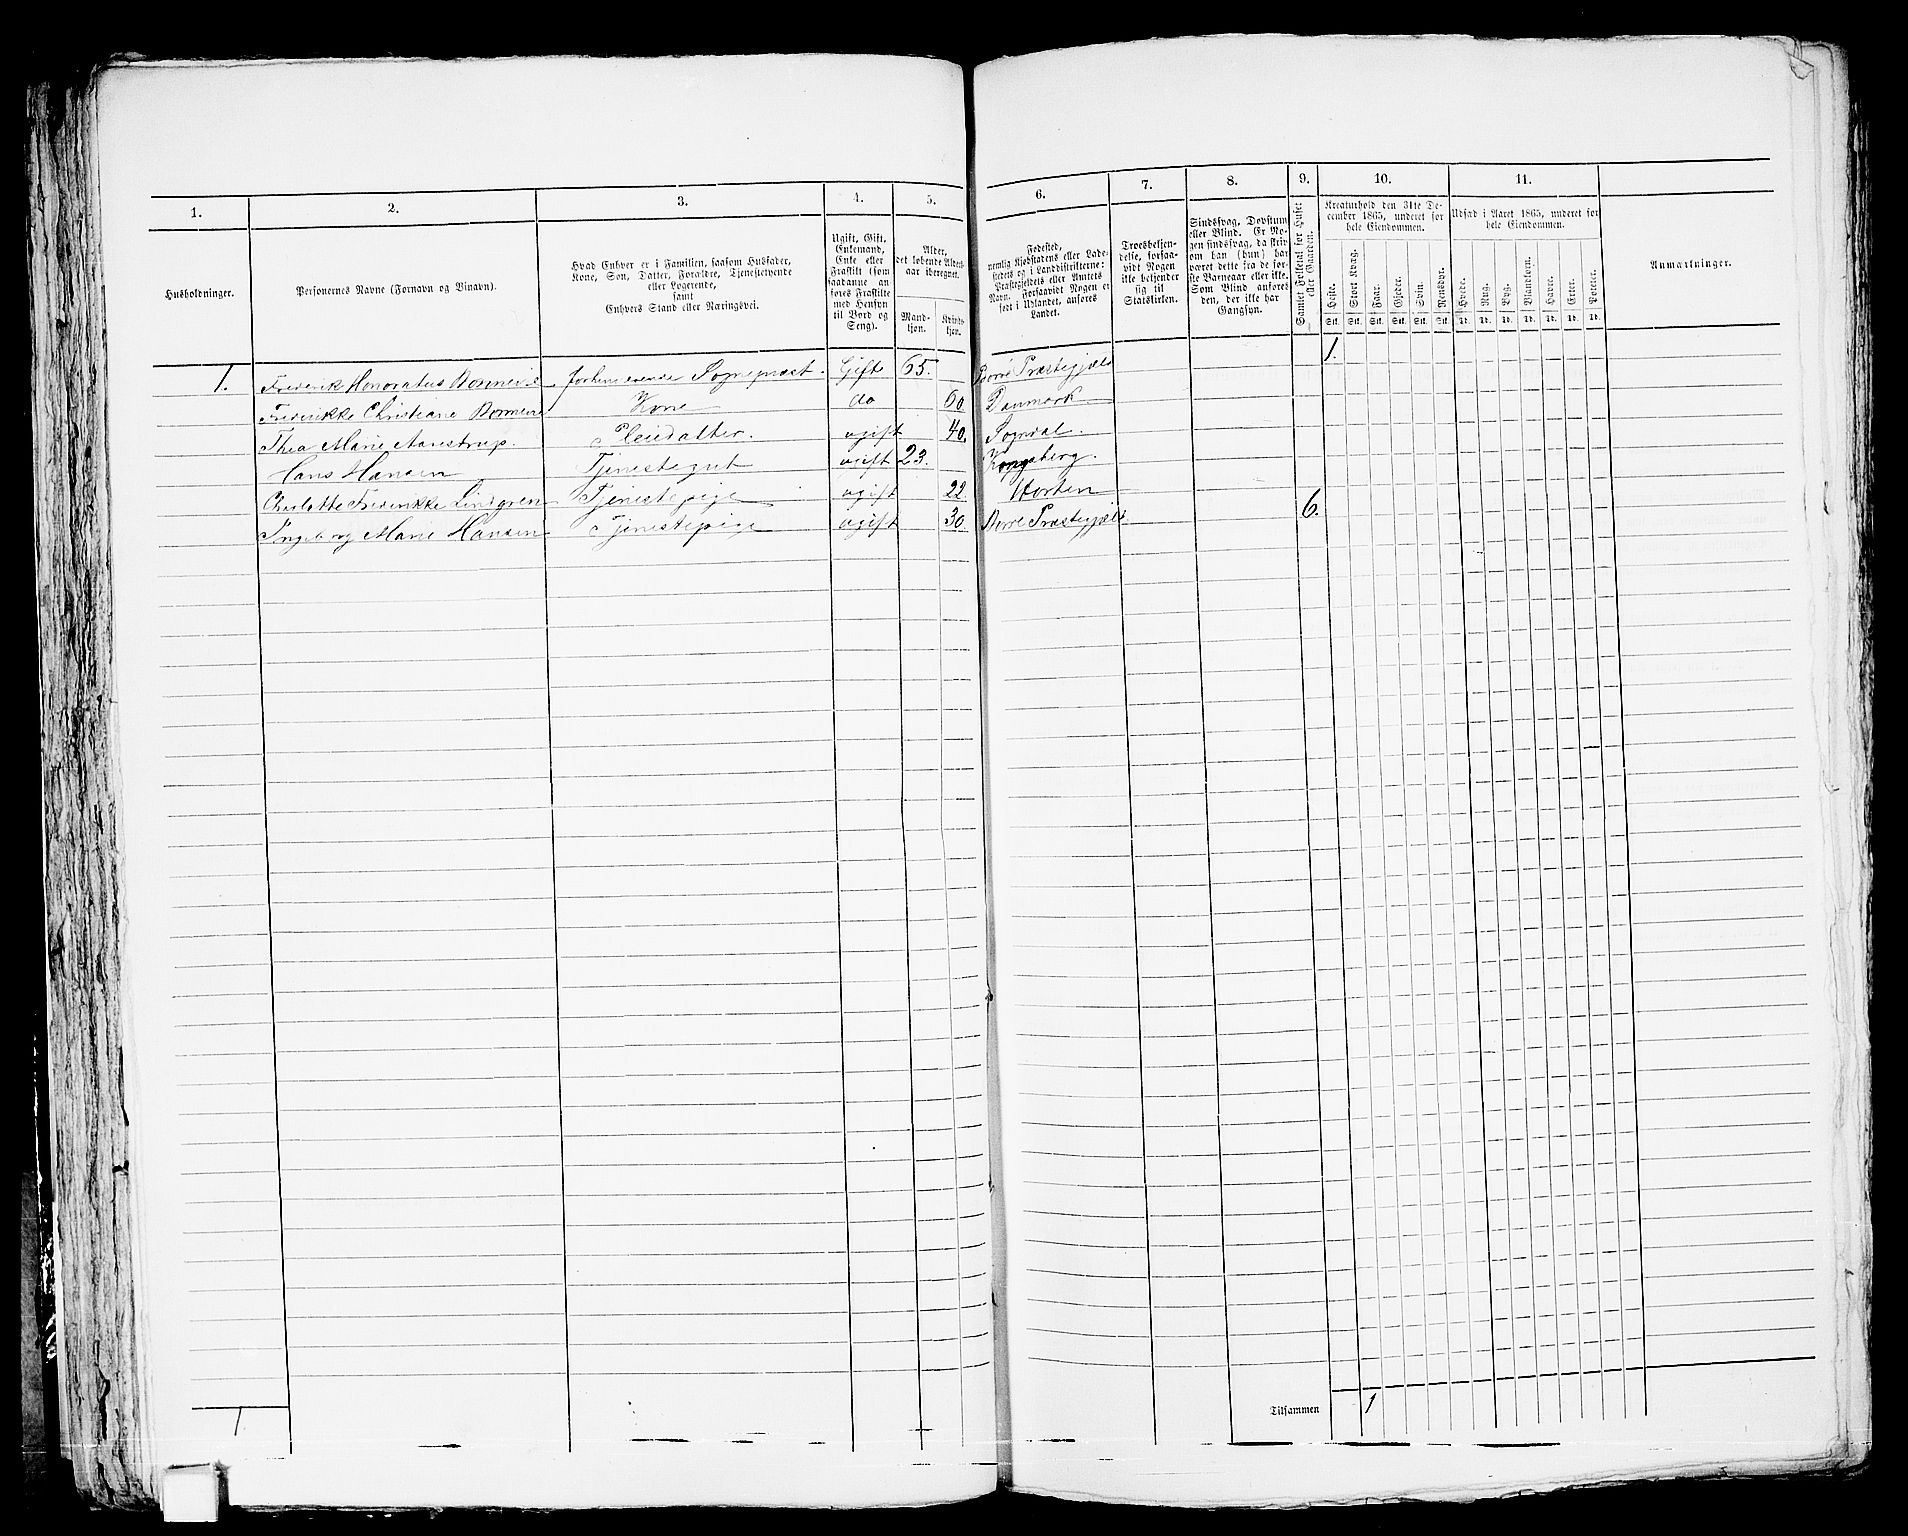 1. 2. 3. 4. 5. 6. 7. 8. 9. 10. 11.
Husholdninger.
Personernes Navne (Fornavn og Tilnavn).
Hvad Enhver er i Familien, saasom Husfader,
Kone, Søn, Datter, Forældre, Tjenestetyende
eller Logerende,
samt
Enhvers Stand eller Næringsvei.
Ugift, Gift,
Enkemand,
Enke eller
Fraskilt (som
saadanne an
føres Fraskilte
med Hensyn
til Bord og
Seng).
Alder,
det løbende Alders-
aar iberegnet.
Mand-
kjøn.
Kvinde-
kjøn.
Fødested,
nemlig Kjøbstadens eller Lade-
stedets og i Landdistrikterne:
Præstegjeldets eller Amtets
Navn. Forsaavidt Nogen er
født i Udlandet, anføres
Landet.
Troesbekjen-
delse, forsaa-
vidt Nogen
ikke bekjender
sig til
Statskirken.
Sindssvag, Døvstum
eller Blind. Er No-
gen sindssvag, da skriv
om han (hun) har
været dette fra de før-
ste Barneaar eller ikke.
Som Blind anføres
den, der ikke har
Gangsyn.
Kreaturhold den 31te De-
cember 1865, underet for
hele Eiendommen.
Heste. Stort Kvæg. Faar. Gjeder. Svin. Rensdyr.
Stk. Stk. Stk. Stk. Stk. Stk.
Udsæd i Aaret 1865, underet for
hele Eiendommen.
Hvede. Rug. Byg. Blandkorn. Havre. Erter. Poteter.
Td. Td. Td. Td. Td. Td. Td.
Anmærkninger.
1. Frederik Honoratus Bonnevie forhenværende Sognepræst. Gift 65. Borre Præstegjæld 1.
Frederikke Christiane Bonnevie Kone do 60. Danmark
Thea Marie Aarestrup. Pleiedatter. ugift 40. Sogndal.
Hans Hansen Tjenestegut ugift 23. Kongsberg.
Charlotte Frederikke Lindgren Tjenestepige ugift 22. Horten
Ingeborg Marie Hansen Tjenestepige ugift 30. Borre Præstegjæld. 6.
Tilsammen 1
1